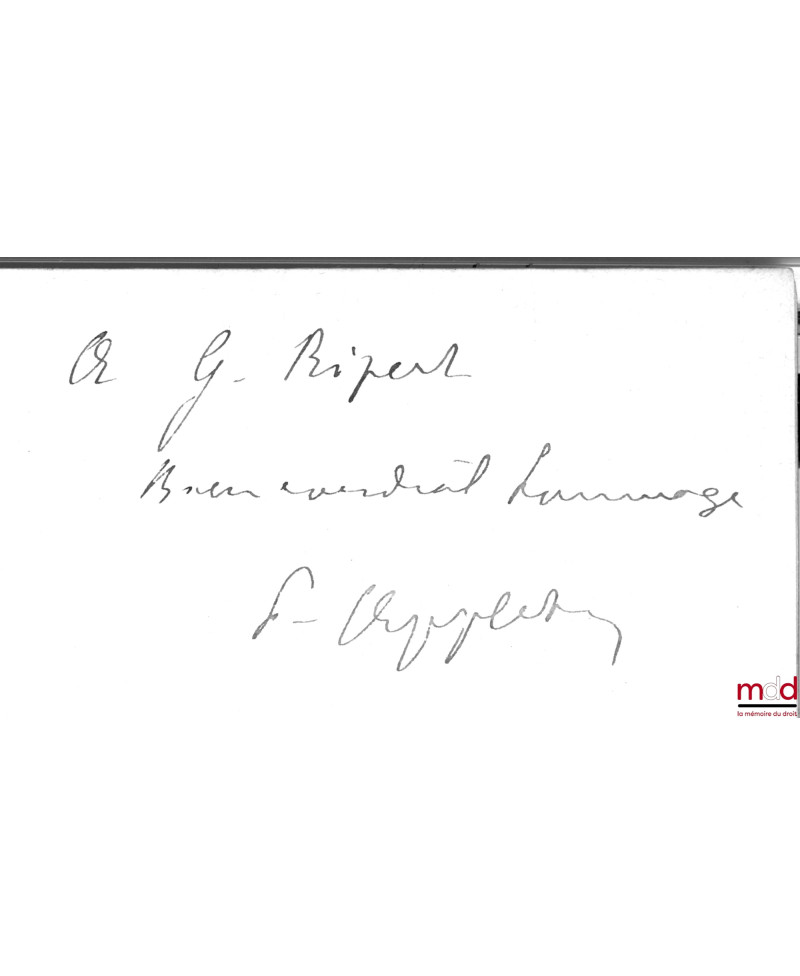 A G. Ripert
Bien cordial hommage
Appleton
mdd
la mémoire du droit